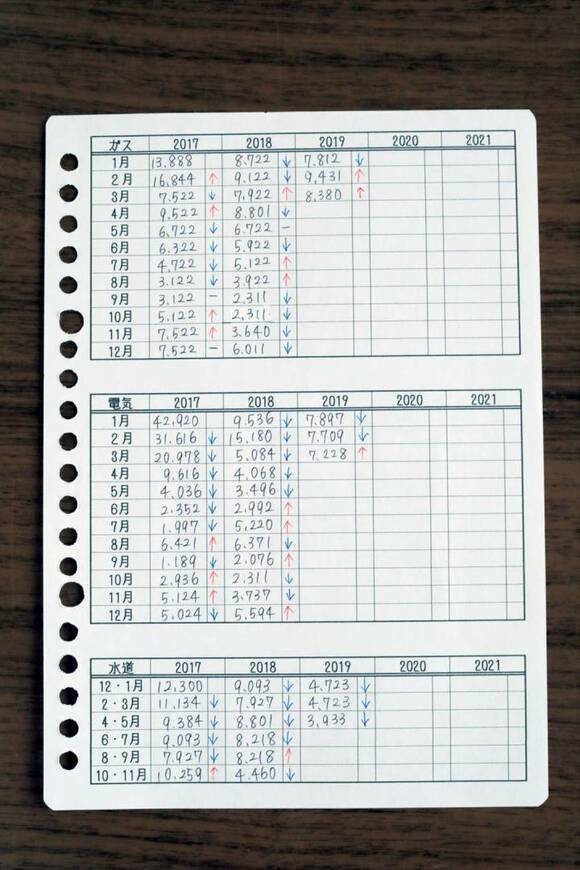 ガス 2017 2018 2019 2020 2021
1月 13.888 8.722 ↓ 7.812 ↓
2月 16.844 ↑ 9.122 ↓ 9.431 ↑
3月 7.522 ↓ 7.922 ↑ 8.380 ↑
4月 9.522 ↑ 8.801 ↓
5月 6.722 ↓ 6.722 −
6月 6.322 ↓ 5.922 ↓
7月 4.722 ↓ 5.122 ↑
8月 3.122 ↓ 3.922 ↑
9月 3.122 − 2.311 ↓
10月 5.122 ↑ 2.311 ↓
11月 7.522 ↑ 3.640 ↓
12月 7.522 − 6.011 ↓
電気 2017 2018 2019 2020 2021
1月 42.920 9.536 ↓ 7.897 ↓
2月 31.616 ↓ 15.180 ↓ 7.709 ↓
3月 20.978 ↓ 5.084 ↓ 7.228 ↑
4月 9.616 ↓ 4.068 ↓
5月 4.036 ↓ 3.496 ↓
6月 2.352 ↓ 2.992 ↑
7月 1.997 ↓ 5.220 ↑
8月 6.421 ↑ 6.371 ↓
9月 1.189 ↓ 2.076 ↑
10月 2.936 ↑ 2.311 ↓
11月 5.124 ↑ 3.737 ↓
12月 5.024 ↓ 5.594 ↑
水道 2017 2018 2019 2020 2021
12・1月 12.300 9.093 ↓ 4.723 ↓
2・3月 11.134 ↓ 7.927 ↓ 4.723 ↓
4・5月 9.384 ↓ 8.801 ↓ 3.933 ↓
6・7月 9.093 ↓ 8.218 ↓
8・9月 7.927 ↓ 8.218 ↑
10・11月 10.259 ↑ 4.460 ↓